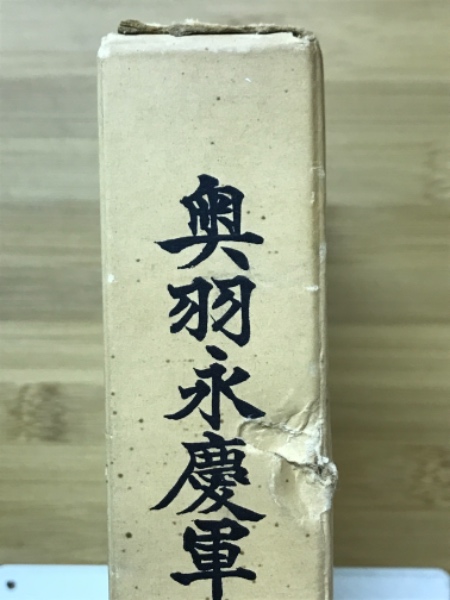 奥羽永慶軍